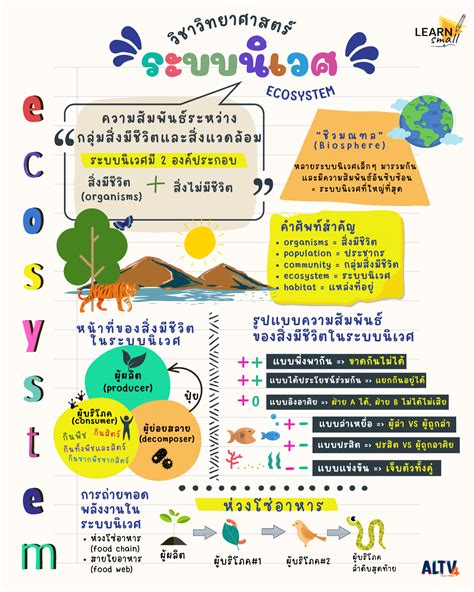 LEARN
small
วิชาวิทยาศาสตร์
ระบบนิเวศ
ECOSYSTEM
ecosystem
ความสัมพันธ์ระหว่าง
กลุ่มสิ่งมีชีวิตและสิ่งแวดล้อม
ระบบนิเวศมี 2 องค์ประกอบ
สิ่งมีชีวิต + สิ่งไม่มีชีวิต
(organisms)
"ชีวมณฑล"
(Biosphere)
หลายระบบนิเวศเล็กๆ มารวมกัน
และมีความสัมพันธ์อันซับซ้อน
= ระบบนิเวศที่ใหญ่ที่สุด
คำศัพท์สำคัญ
• organisms = สิ่งมีชีวิต
• population = ประชากร
• community = กลุ่มสิ่งมีชีวิต
• ecosystem = ระบบนิเวศ
• habitat = แหล่งที่อยู่
หน้าที่ของสิ่งมีชีวิต
ในระบบนิเวศ
ผู้ผลิต
(producer)
ปุ๋ย
ผู้บริโภค
(consumer)
กินพืช กินสัตว์
กินทั้งพืชและสัตว์
กินซากพืชซากสัตว์
ผู้ย่อยสลาย
(decomposer)
รูปแบบความสัมพันธ์
ของสิ่งมีชีวิตในระบบนิเวศ
++ แบบพึ่งพากัน => ขาดกันไม่ได้
++ แบบได้ประโยชน์ร่วมกัน => แยกกันอยู่ได้
+0 แบบอิงอาศัย => ฝ่าย A ได้, ฝ่าย B ไม่ได้ไม่เสีย
+- แบบล่าเหยื่อ => ผู้ล่า VS ผู้ถูกล่า
+- แบบปรสิต => ปรสิต VS ผู้ถูกอาศัย
-- แบบแข่งขัน => เจ็บตัวทั้งคู่
การถ่ายทอด
พลังงานใน
ระบบนิเวศ
• ห่วงโซ่อาหาร
(food chain)
• สายใยอาหาร
(food web)
ห่วงโซ่อาหาร
ผู้ผลิต
ผู้บริโภค#1
ผู้บริโภค#2
ผู้บริโภค
ลำดับสุดท้าย
ALTV4